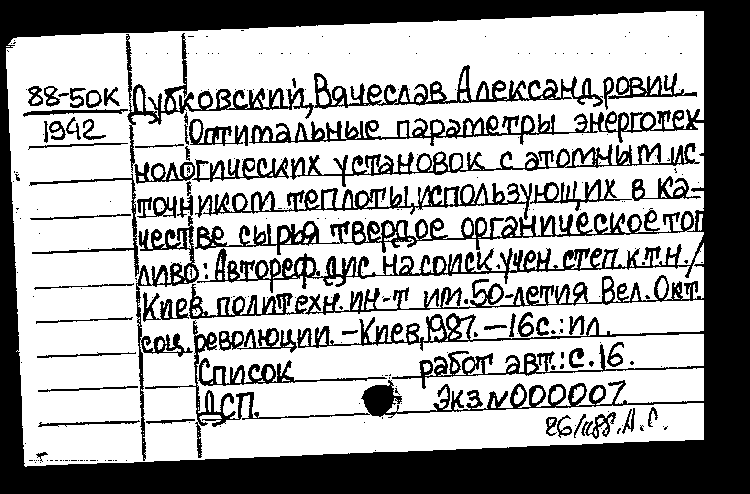 88-50К Дубковский, Вячеслав Александрович.
1942 Оптимальные параметры энерготех-
нологических установок с атомным ис-
точником теплоты, использующих в ка-
честве сырья твердое органическое топ
ливо: Автореф. дис. на соиск. учен. степ. к.т.н. /
Киев. политехн. ин-т им. 50-летия Вел. Окт.
соц. революции. – Киев, 1987. – 16 с.: ил.
Список работ авт.: с. 16.
ДСП. Экз N000007.
26/II88. А.С.